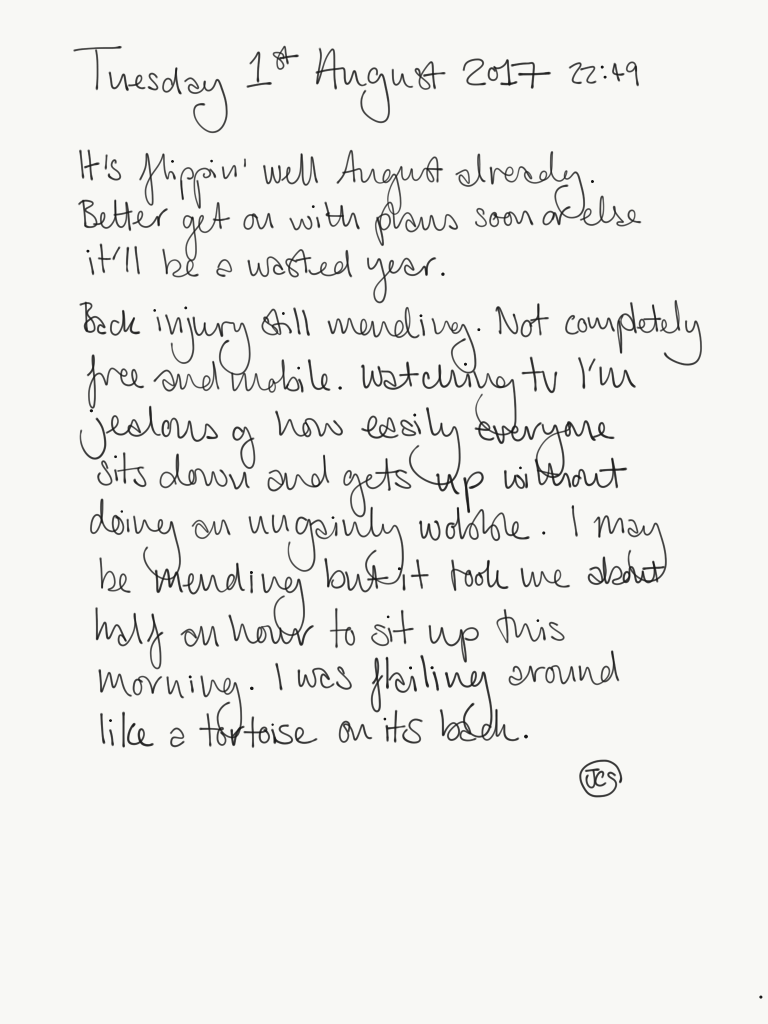 Tuesday 1st August 2017 22:49
It's flippin' well August already.
Better get on with plans soon or else
it'll be a wasted year.
Back injury still mending. Not completely
free and mobile. Watching tv I'm
jealous of how easily everyone
sits down and gets up without
doing an ungainly wobble. I may
be mending but it took me about
half an hour to sit up this
morning. I was flailing around
like a tortoise on its back.
JCS